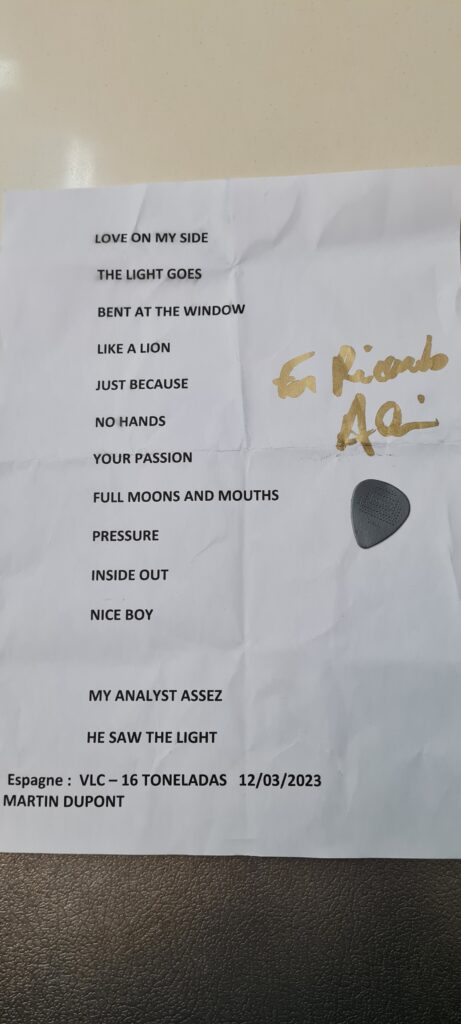 LOVE ON MY SIDE
THE LIGHT GOES
BENT AT THE WINDOW
LIKE A LION
JUST BECAUSE
NO HANDS
YOUR PASSION
FULL MOONS AND MOUTHS
PRESSURE
INSIDE OUT
NICE BOY
For Ricardo
MY ANALYST ASSEZ
HE SAW THE LIGHT
Espagne : VLC – 16 TONELADAS 12/03/2023
MARTIN DUPONT